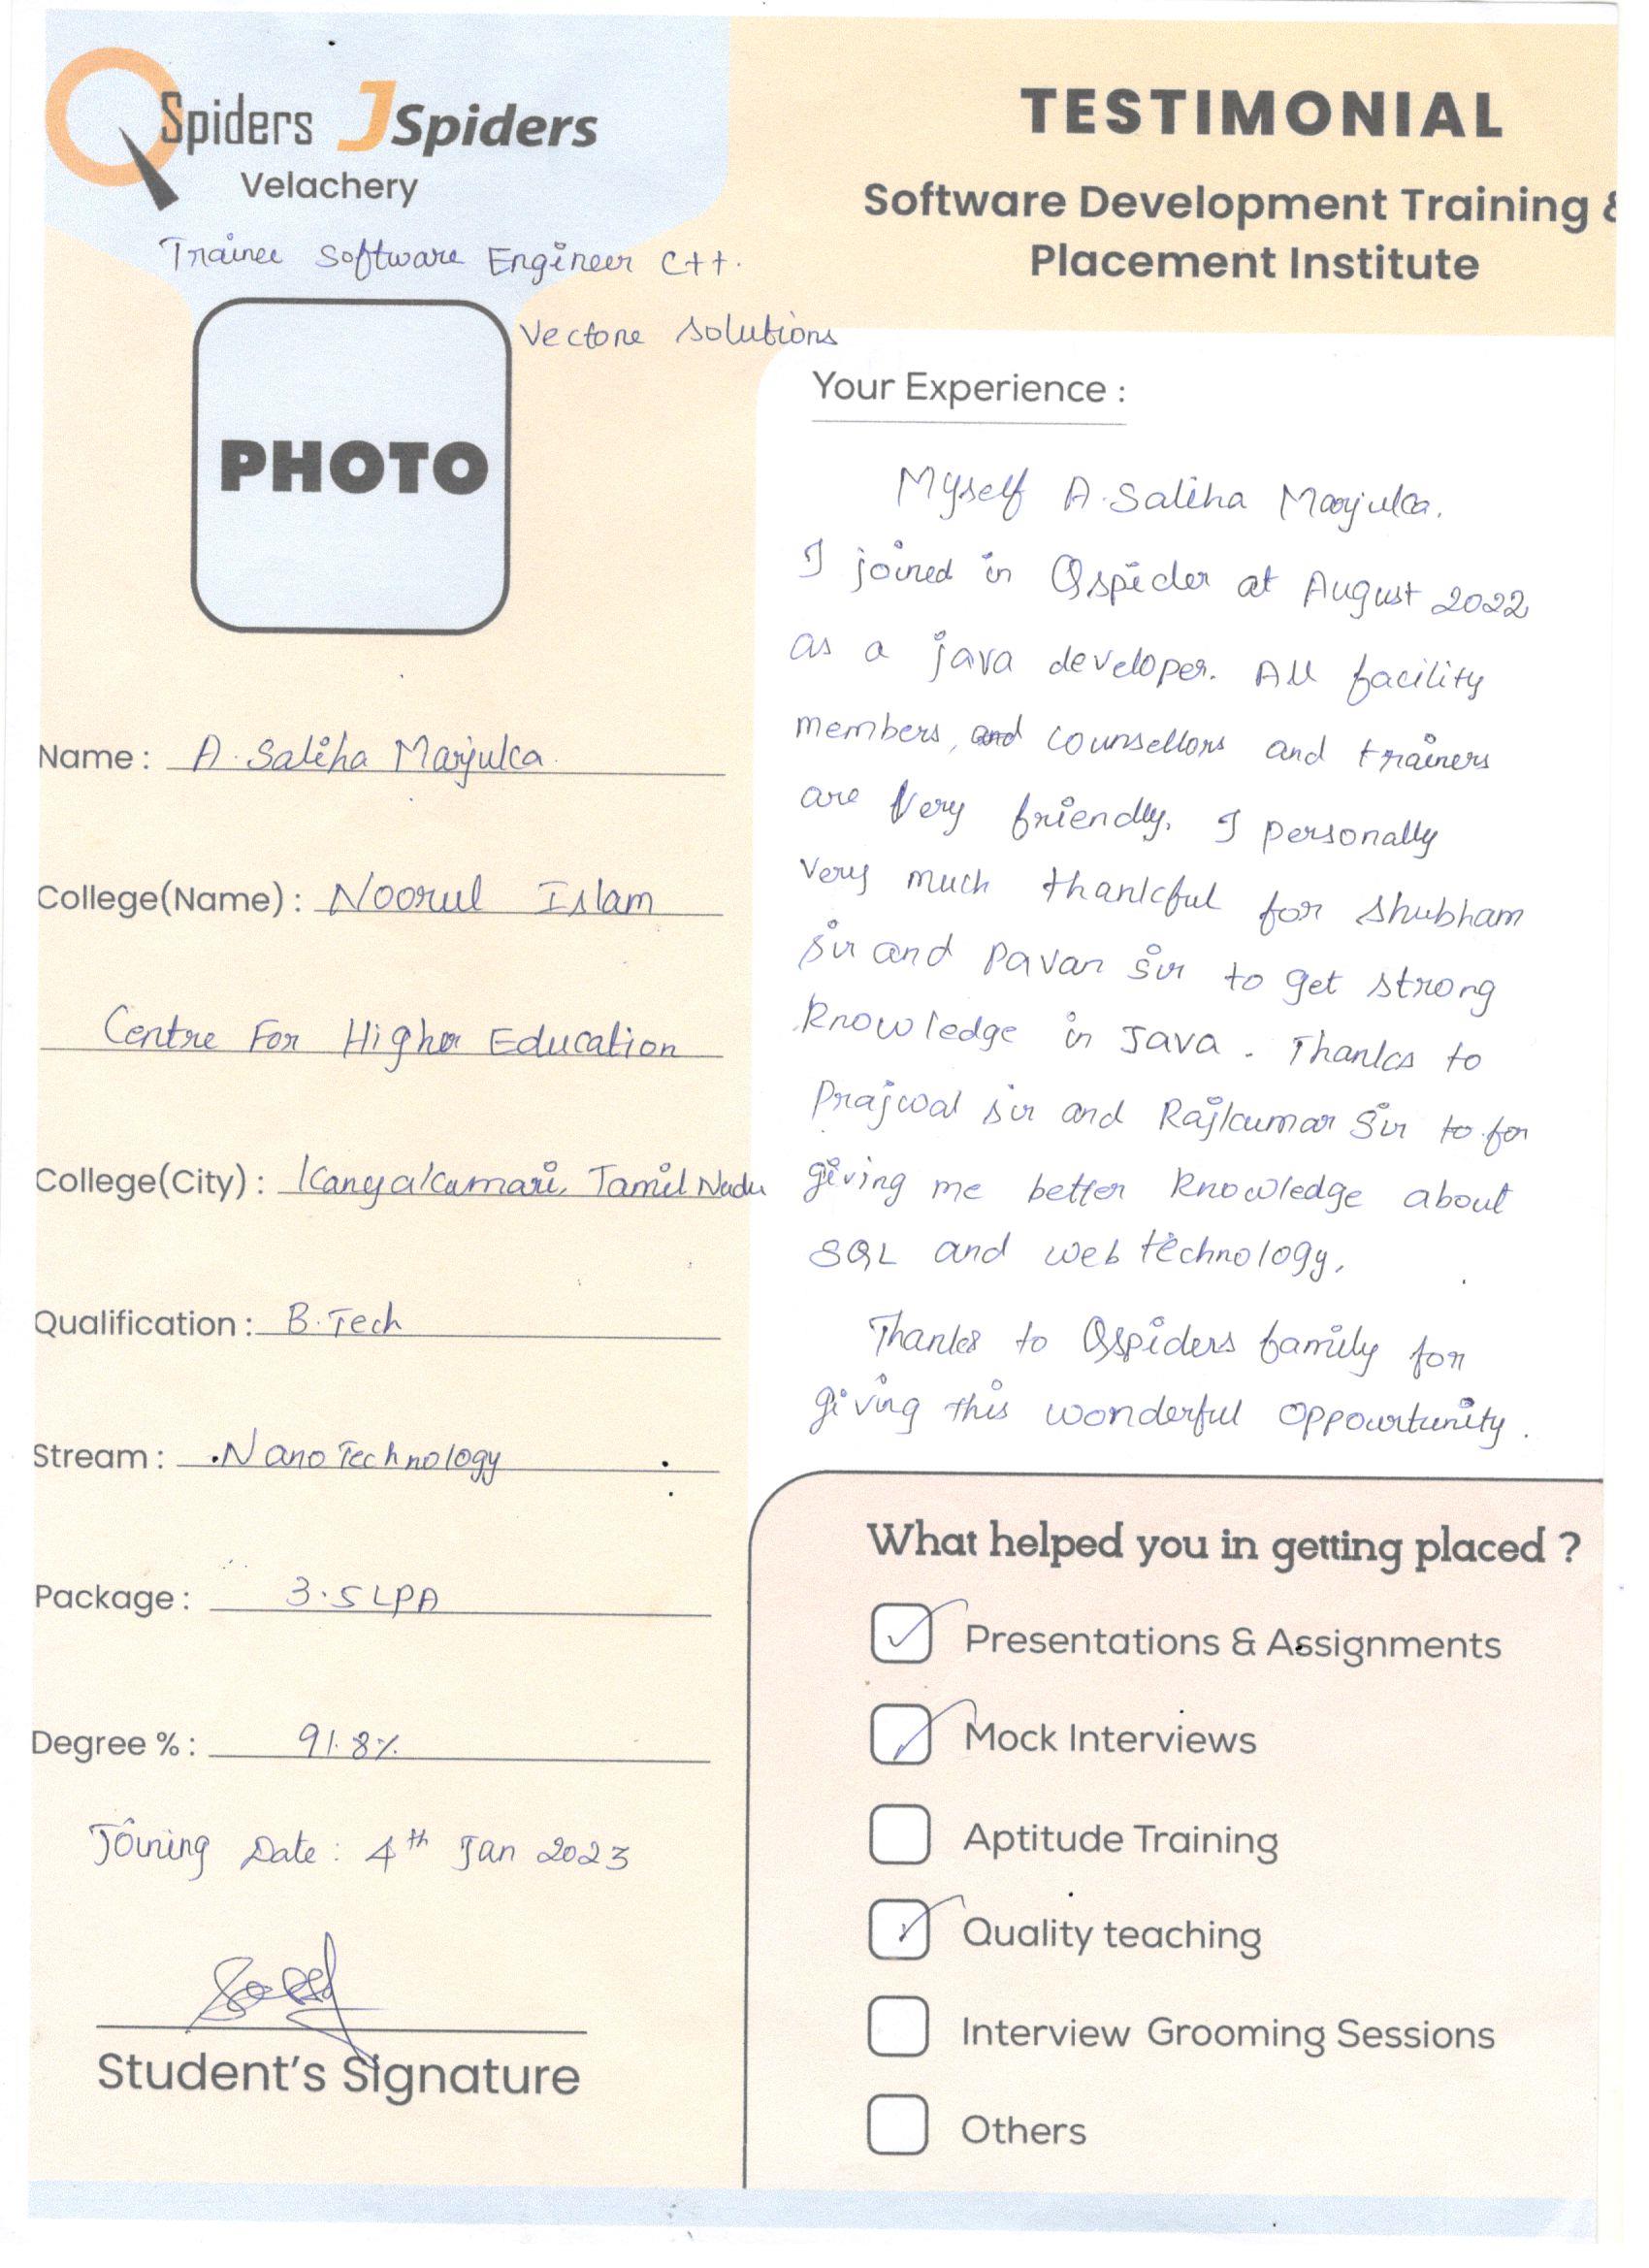 QSpiders JSpiders
Velachery
TESTIMONIAL
Software Development Training &
Placement Institute
Trainee Software Engineer C++.
Vectone Solutions
PHOTO
Name : A. Saliha Marjulca.
College(Name) : Noorul Islam
Centre For Higher Education
College(City) : Kanyakumari, Tamil Nadu
Qualification : B.Tech
Stream : NanoTechnology
Package : 3.5 LPA
Degree % : 91.8%
Joining Date : 4th Jan 2023
Student's Signature
Your Experience :
Myself A. Saliha Marjulca.
I joined in Qspider at August 2022
as a java developer. All facility
members, and counsellors and trainers
are very friendly. I personally
very much thankful for Shubham
sir and Pavan Sir to get strong
knowledge in Java. Thanks to
Prajwal sir and Rajkumar Sir to for
giving me better knowledge about
SQL and web technology.
Thanks to Qspiders family for
giving this wonderful oppourtunity.
What helped you in getting placed ?
Presentations & Assignments
Mock Interviews
Aptitude Training
Quality teaching
Interview Grooming Sessions
Others